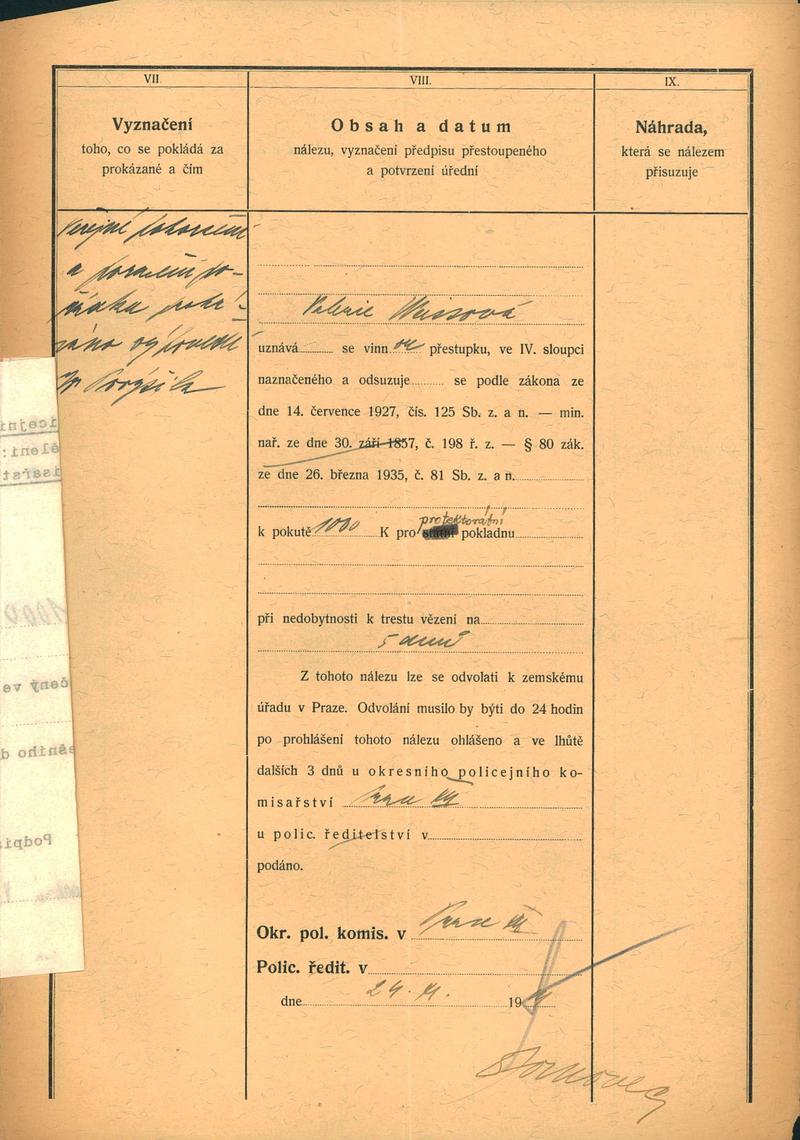 VII.
VIII.
IX.
Vyznačení
toho, co se pokládá za
prokázané a čím
Obsah a datum
nálezu, vyznačení předpisu přestoupeného
a potvrzení úřední
Náhrada,
která se nálezem
přisuzuje
Veřejné pohoršení
a porušení po-
řádku proká-
záno výpovědí
Valerie Weissová
uznává se vinnou přestupku, ve IV. sloupci
naznačeného a odsuzuje se podle zákona ze
dne 14. července 1927, čís. 125 Sb. z. a n. — min.
nař. ze dne 30. září 1857, č. 198 ř. z. — § 80 zák.
ze dne 26. března 1935, č. 81 Sb. z. a n.
protektorátní
k pokutě 1000 K pro státní pokladnu
při nedobytnosti k trestu vězení na
5 dnů
Z tohoto nálezu lze se odvolati k zemskému
úřadu v Praze. Odvolání musilo by býti do 24 hodin
po prohlášení tohoto nálezu ohlášeno a ve lhůtě
dalších 3 dnů u okresního policejního ko-
misařství
u polic. ředitelství v
podáno.
Okr. pol. komis. v Praze
Polic. ředit. v
dne 24. 19